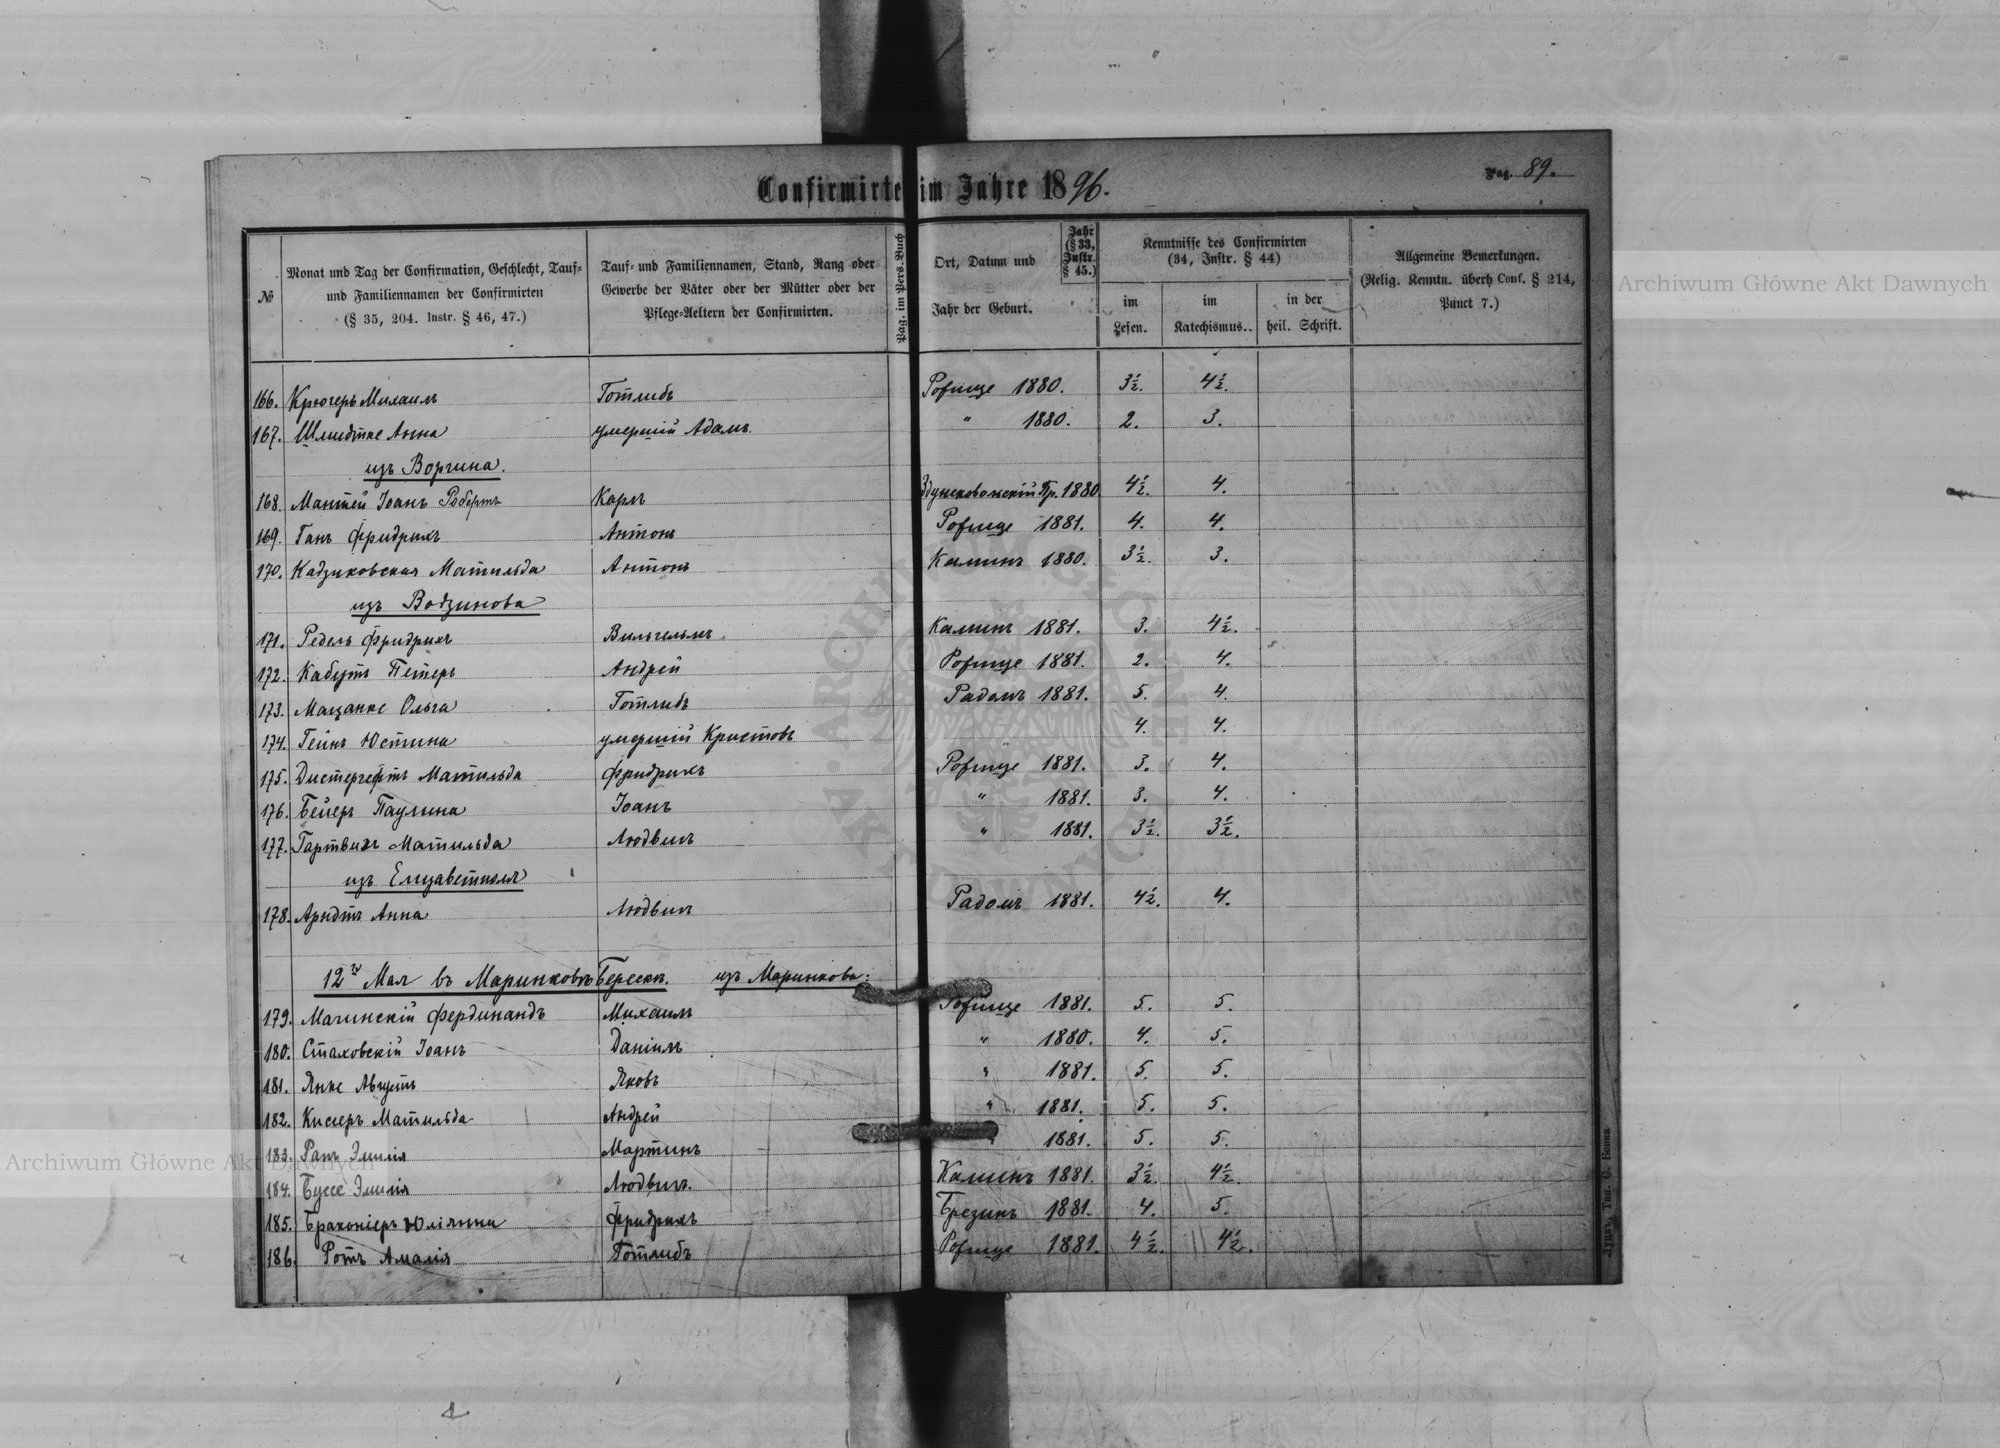 Confirmirte im Jahre 1896.
Pag. 89.
№
Monat und Tag der Confirmation, Geschlecht, Tauf-
und Familiennamen der Confirmirten
(§ 35, 204. Instr. § 46, 47.)
Tauf- und Familiennamen, Stand, Rang oder
Gewerbe der Väter oder der Mütter oder der
Pflege-Aeltern der Confirmirten.
Pag. im Pers. Buch
Ort, Datum und
Jahr der Geburt.
Jahr
(§ 33,
Instr.
§ 45.)
Kenntnisse des Confirmirten
(34, Instr. § 44)
im
Lesen.
im
Katechismus.
in der
heil. Schrift.
Allgemeine Bemerkungen.
(Relig. Kenntn. überh Conf. § 214,
Punct 7.)
166. Крюгеръ Михаилъ Готлибъ Рожище 1880. 3½. 4½.
167. Шмидтке Анна умершій Адамъ. " 1880. 2. 3.
изъ Воргина.
168. Мантей Іоанъ Робертъ Карлъ Здунсковольскій Пр. 1880 4½. 4.
169. Ганъ Фридрихъ Антонъ Рожище 1881. 4. 4.
170. Кадзиковская Матильда Антонъ Каминъ 1880. 3½. 3.
изъ Водзинова
171. Редель Фридрихъ Вильгельмъ Каминъ 1881. 3. 4½.
172. Кабутъ Петеръ Андрей Рожище 1881. 2. 4.
173. Мацанке Ольга Готлибъ Радомъ 1881. 5. 4.
174. Гейнъ Юстина умершій Кристовъ 4. 4.
175. Дистергефтъ Матильда Фридрихъ Рожище 1881. 3. 4.
176. Бейеръ Паулина Іоанъ " 1881. 3. 4.
177. Гартвихъ Матильда Людвигъ " 1881. 3½. 3½.
изъ Елизаветполя
178. Арндтъ Анна Людвигъ Радомъ 1881. 4½. 4.
12го Мая въ Маринковъ Берескъ. изъ Маринкова:
179. Мачинскій Фердинандъ Михаилъ Рожище 1881. 5. 5.
180. Стаховскій Іоанъ Даніилъ " 1880. 4. 5.
181. Янке Августъ Яковъ " 1881. 5. 5.
182. Кисеръ Матильда Андрей " 1881. 5. 5.
183. Рапъ Эмилія Мартинъ " 1881. 5. 5.
184. Буссе Эмилія Людвигъ. Каминъ 1881. 3½. 4½.
185. Браконіеръ Юліянна Фридрихъ Брезинъ 1881. 4. 5.
186. Ротъ Амалія Готлибъ Рожище 1881. 4½. 4½.
Archiwum Główne Akt Dawnych
Archiwum Główne Akt Dawnych